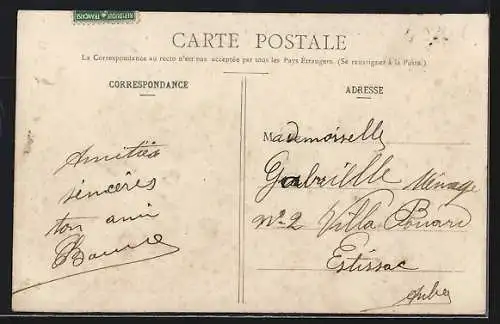 REPUBLIQUE FRANÇAISE
CARTE POSTALE
La Correspondance au recto n'est pas acceptée par tous les Pays Etrangers. (Se renseigner à la Poste.)
CORRESPONDANCE
Amitiés
sincères
ton ami
ADRESSE
Mademoiselle
Gabrielle Ménage
N° 2 Villa
Estissac
Aube